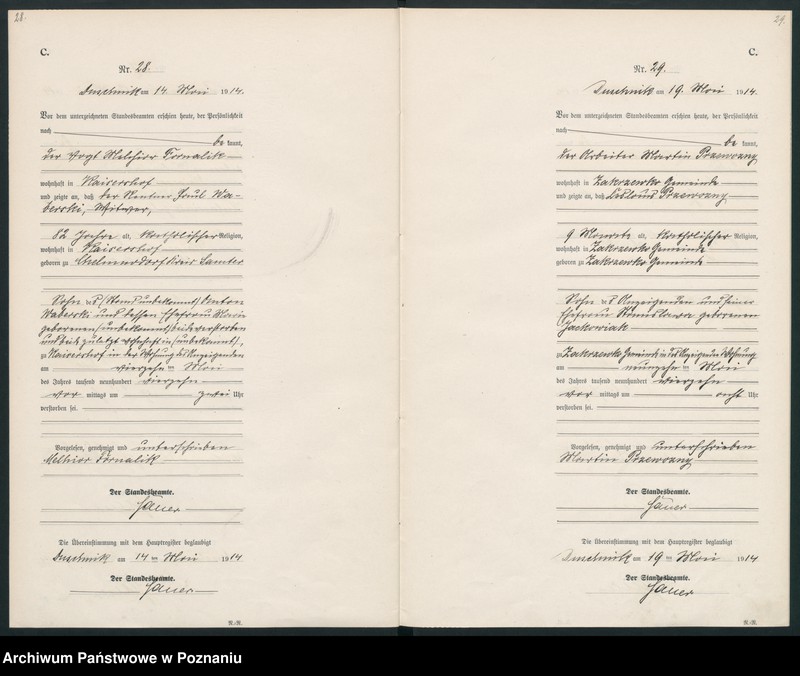 28.
C.
Nr. 28.
Duschnik am 14. Mai 1914.
Vor dem unterzeichneten Standesbeamten erschien heute, der Persönlichkeit
nach
be kannt,
der Vogt Melchior Fornalik
wohnhaft in Kaisershof
und zeigte an, daß der Rentner Paul Wa-
berski, Witwer,
82 Jahre alt, katholischer Religion,
wohnhaft in Kaisershof
geboren zu Kreis Samter
Sohn des (Stand unbekannt) Anton
Waberski und dessen Ehefrau Maria
geborenen (unbekannt) beide verstorben
und beide zuletzt wohnhaft in (unbekannt),
zu Kaisershof in der Wohnung des Anzeigenden
am vierzehnten Mai
des Jahres tausend neunhundert vierzehn
vor mittags um zwei Uhr
verstorben sei.
Vorgelesen, genehmigt und unterschrieben
Melhior Fornalik
Der Standesbeamte.
Jäuer
Die Übereinstimmung mit dem Hauptregister beglaubigt
Duschnik am 14 ten Mai 1914
Der Standesbeamte.
Jäuer
29.
C.
Nr. 29.
Duschnik am 19. Mai 1914.
Vor dem unterzeichneten Standesbeamten erschien heute, der Persönlichkeit
nach
be kannt,
der Arbeiter Martin Przewozny
wohnhaft in Zakrzewko Gemeinde
und zeigte an, daß Przewozny
9 Monate alt, katholischer Religion,
wohnhaft in Zakrzewko Gemeinde
geboren zu Zakrzewko Gemeinde
Sohn des Anzeigenden und seiner
Ehefrau Stanislawa geborenen
Jackowiak
zu Zakrzewko Gemeinde in des Anzeigenden Wohnung
am neunzehnten Mai
des Jahres tausend neunhundert vierzehn
vor mittags um acht Uhr
verstorben sei.
Vorgelesen, genehmigt und unterschrieben
Martin Przewozny
Der Standesbeamte.
Jäuer
Die Übereinstimmung mit dem Hauptregister beglaubigt
Duschnik am 19 ten Mai 1914
Der Standesbeamte.
Jäuer
Archiwum Państwowe w Poznaniu